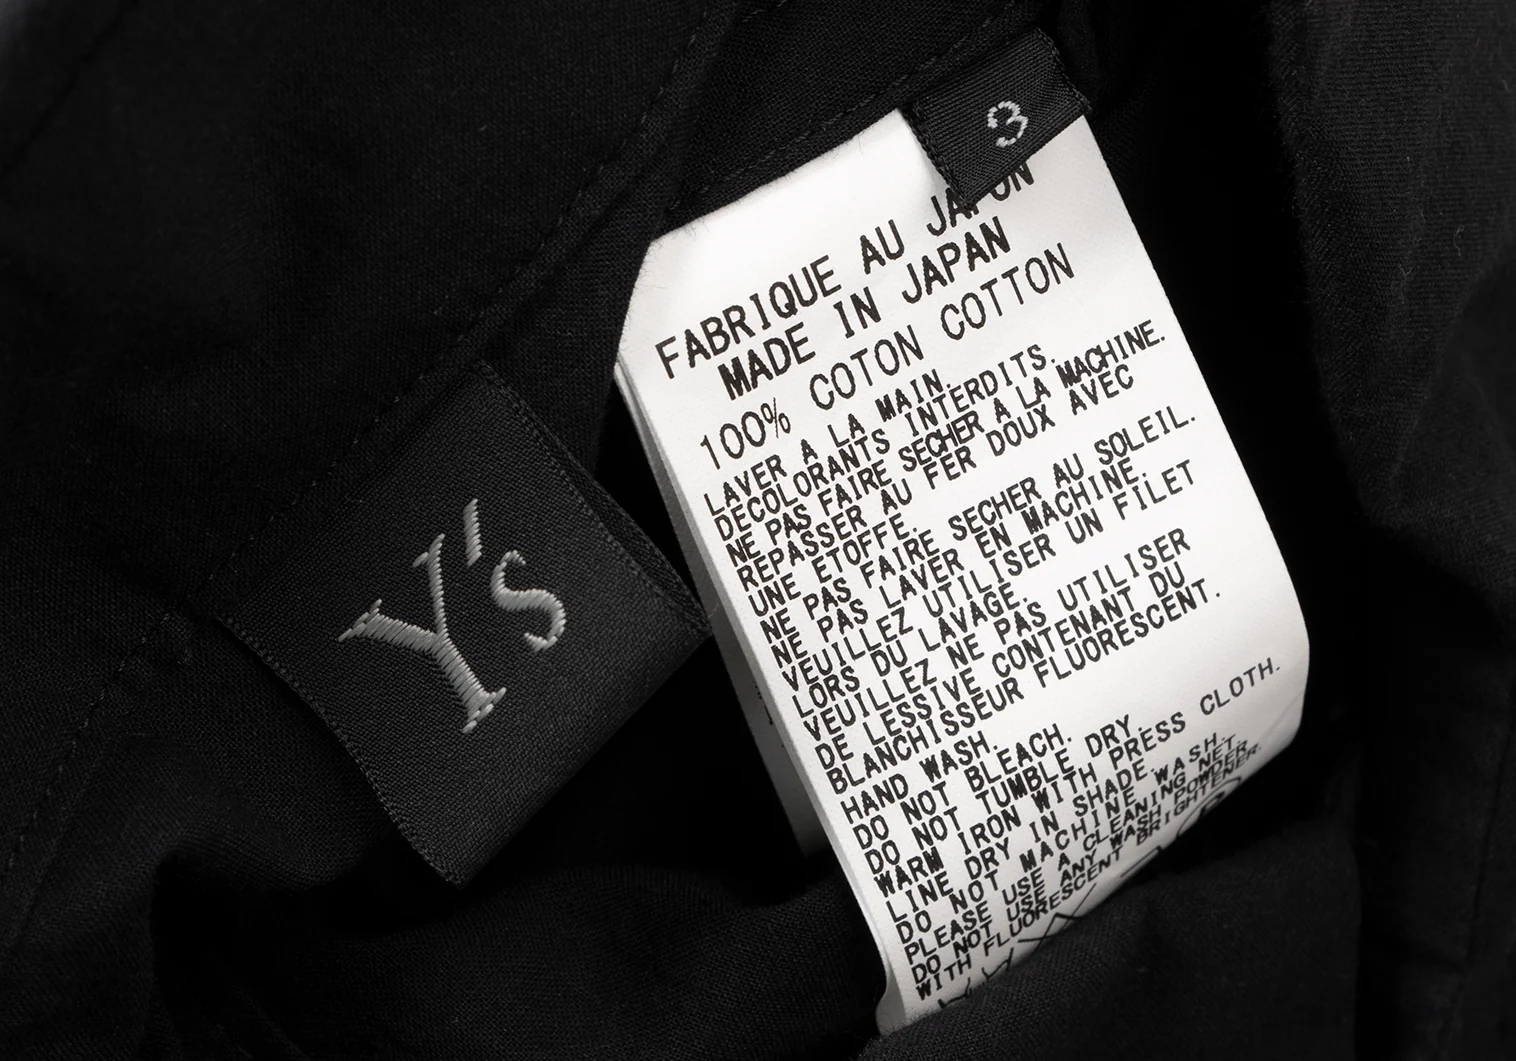 3
FABRIQUE AU JAPON
MADE IN JAPAN
100% COTON COTTON
LAVER A LA MAIN.
DECOLORANTS INTERDITS.
NE PAS FAIRE SECHER A LA MACHINE.
REPASSER AU FER DOUX AVEC
UNE ETOFFE.
NE PAS FAIRE SECHER AU SOLEIL.
NE PAS LAVER EN MACHINE.
VEUILLEZ UTILISER UN FILET
LORS DU LAVAGE.
VEUILLEZ NE PAS UTILISER
DE LESSIVE CONTENANT DU
BLANCHISSEUR FLUORESCENT.
HAND WASH.
DO NOT BLEACH.
DO NOT TUMBLE DRY.
WARM IRON WITH PRESS CLOTH.
LINE DRY IN SHADE.
DO NOT MACHINE WASH.
PLEASE USE A CLEANING NET.
DO NOT USE ANY WASH POWDER
WITH FLUORESCENT BRIGHTENER.
Y's